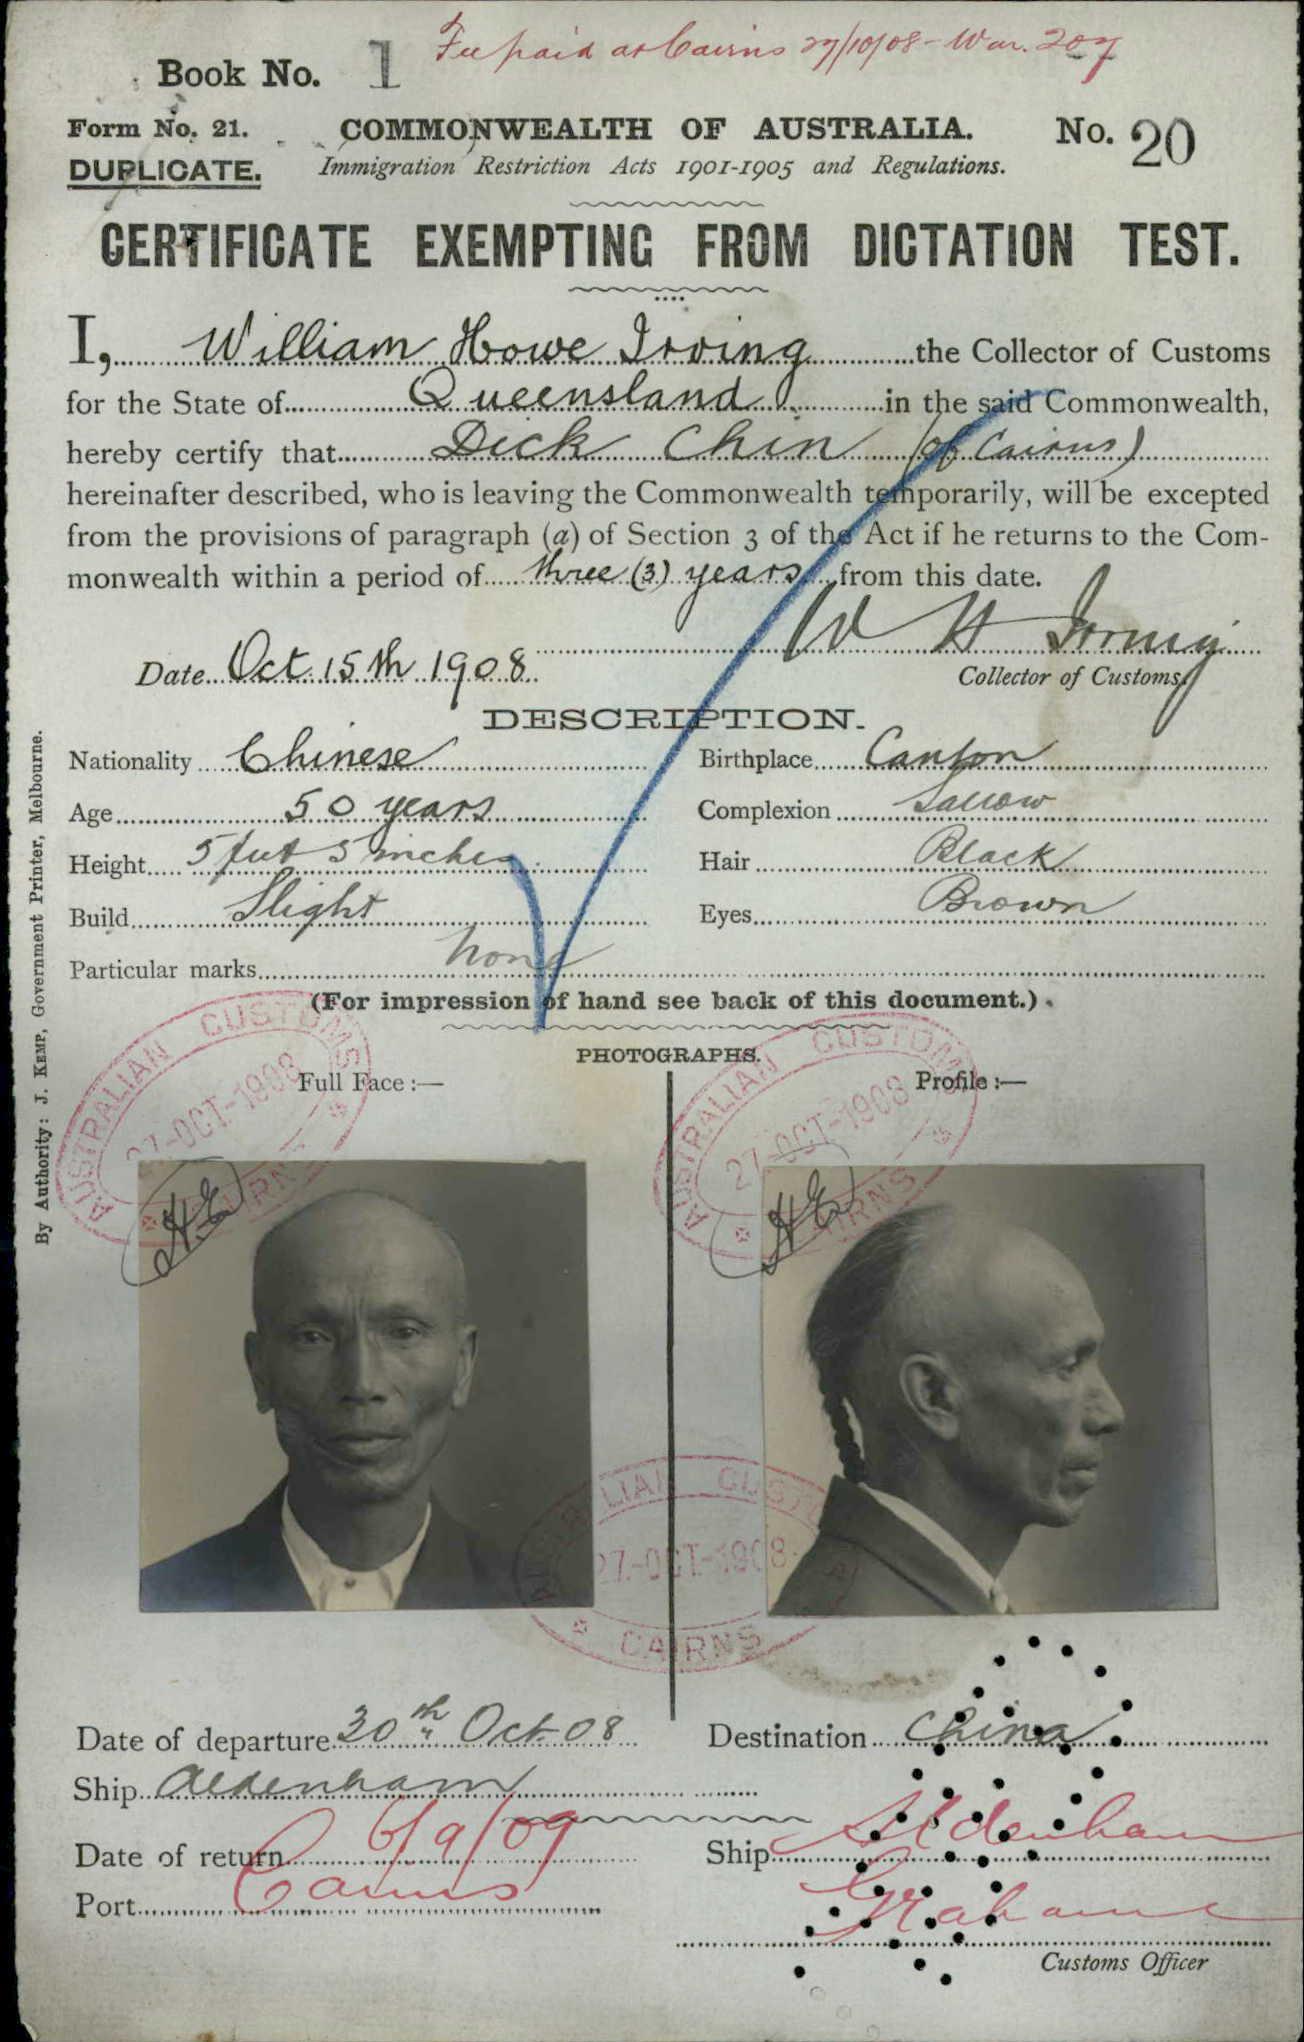 Fee paid at Cairns 27/10/08 - War. 207
Book No. 1
Form No. 21.
COMMONWEALTH OF AUSTRALIA.
No. 20
DUPLICATE.
Immigration Restriction Acts 1901-1905 and Regulations.
CERTIFICATE EXEMPTING FROM DICTATION TEST.
I, William Howe Irving the Collector of Customs
for the State of Queensland in the said Commonwealth,
hereby certify that Dick Chin (of Cairns)
hereinafter described, who is leaving the Commonwealth temporarily, will be excepted
from the provisions of paragraph (a) of Section 3 of the Act if he returns to the Com-
monwealth within a period of three (3) years from this date.
W H Irving
Date Oct 15th 1908
Collector of Customs.
DESCRIPTION.
Nationality Chinese
Birthplace Canton
Age 50 years
Complexion Sallow
Height 5 feet 5 inches
Hair Black
Build Slight
Eyes Brown
Particular marks None
(For impression of hand see back of this document.)
PHOTOGRAPHS.
Full Face :—
Profile :—
AUSTRALIAN CUSTOMS
27-OCT-1908
CAIRNS
AUSTRALIAN CUSTOMS
27-OCT-1908
CAIRNS
H.E
H.E
AUSTRALIAN CUSTOMS
27-OCT-1908
CAIRNS
Date of departure 30th Oct 08
Destination China
Ship Aldenham
Date of return 6/9/09
Ship Aldenham
Port Cairns
Grahame
Customs Officer
By Authority: J. KEMP, Government Printer, Melbourne.